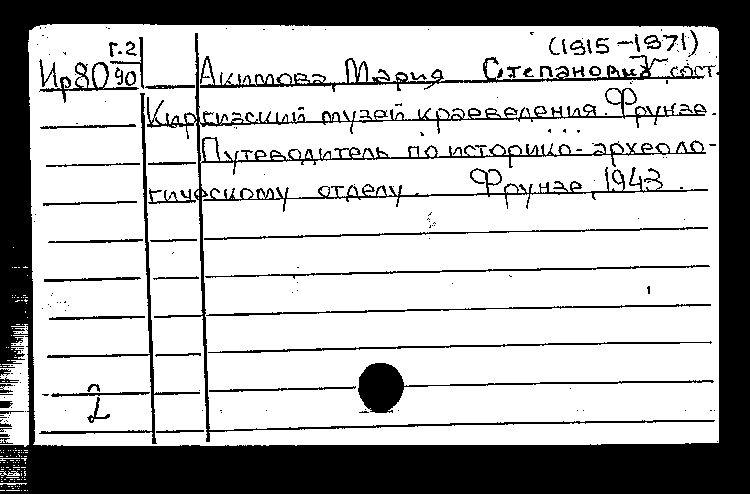 (1915-1971)
Г.2
Ир80 90 Акимова, Мария Степановна сост.
Киргизский музей краеведения. Фрунзе.
Путеводитель по историко-археоло-
гическому отделу. Фрунзе, 1943.
2